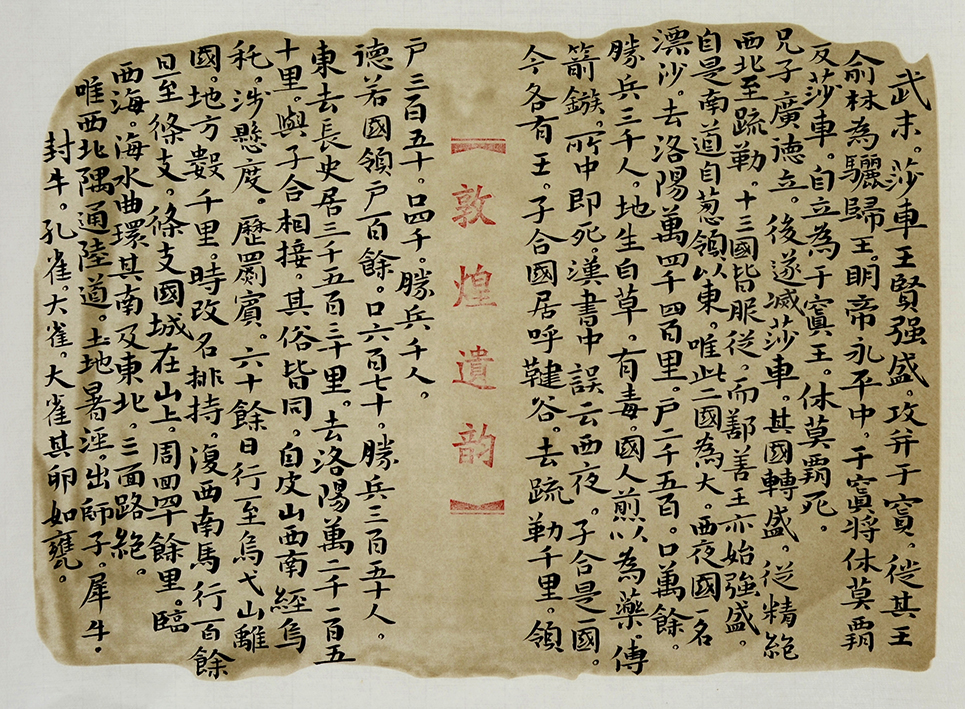 武末。莎車王賢强盛。攻并于窴。徙其王
俞林為驪歸王。明帝永平中。于窴將休莫霸
反莎車。自立為于窴王。休莫霸死。
兄子廣德立。後遂滅莎車。其國轉盛。從精絶
西北至疏勒。十三國皆服從。而鄯善王亦始強盛。
自是南道自葱領以東。唯此二國為大。西夜國一名
漂沙。去洛陽萬四千四百里。戶二千五百。口萬餘。
勝兵三千人。地生白草。有毒。國人煎以為藥。傅
箭鏃。所中即死。漢書中誤云西夜。子合是一國。
今各有王。子合國居呼鞬谷。去疏勒千里。領
【敦煌遺韵】
戶三百五十。口四千。勝兵千人。
德若國領戶百餘。口六百七十。勝兵三百五十人。
東去長史居三千五百三十里。去洛陽萬二千一百五
十里。與子合相接。其俗皆同。自皮山西南經烏
秅。涉懸度。歷罽賓。六十餘日行至烏弋山離
國。地方數千里。時改名排持。復西南馬行百餘
日至條支。條支國城在山上。周回四十餘里。臨
西海。海水曲環其南及東北。三面路絶。
唯西北隅通陸道。土地暑溼。出師子。犀牛。
封牛。孔雀。大雀。大雀其卵如甕。